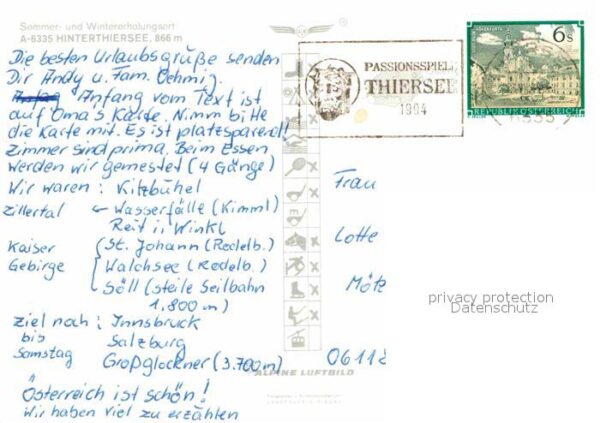 Sommer- und Wintererholungsort
A-6335 HINTERTHIERSEE, 866 m
Die besten Urlaubsgrüße senden
Dir Andy u. Fam. Oehmig.
Anfang vom Text ist
auf Oma's Karte. Nimm bitte
die Karte mit. Es ist platzsparend!
Zimmer sind prima. Beim Essen
werden wir gemestet (4 Gänge)
Wir waren: Kitzbühel
Zillertal - Wasserfälle (Kimml)
Reit i. Winkl
Kaiser St. Johann (Rodelb.)
Gebirge Walchsee (Rodelb.)
Söll (steile Seilbahn
1.800 m)
Ziel noch: Innsbruck
bis Salzburg
Samstag Großglockner (3.700m)
Österreich ist schön!
Wir haben viel zu erzählen
PASSIONSSPIEL
THIERSEE
6s
REPUBLIK ÖSTERREICH
Frau
Lotte
Mötz
0611
privacy protection
Datenschutz
ALPINE LUFTBILD